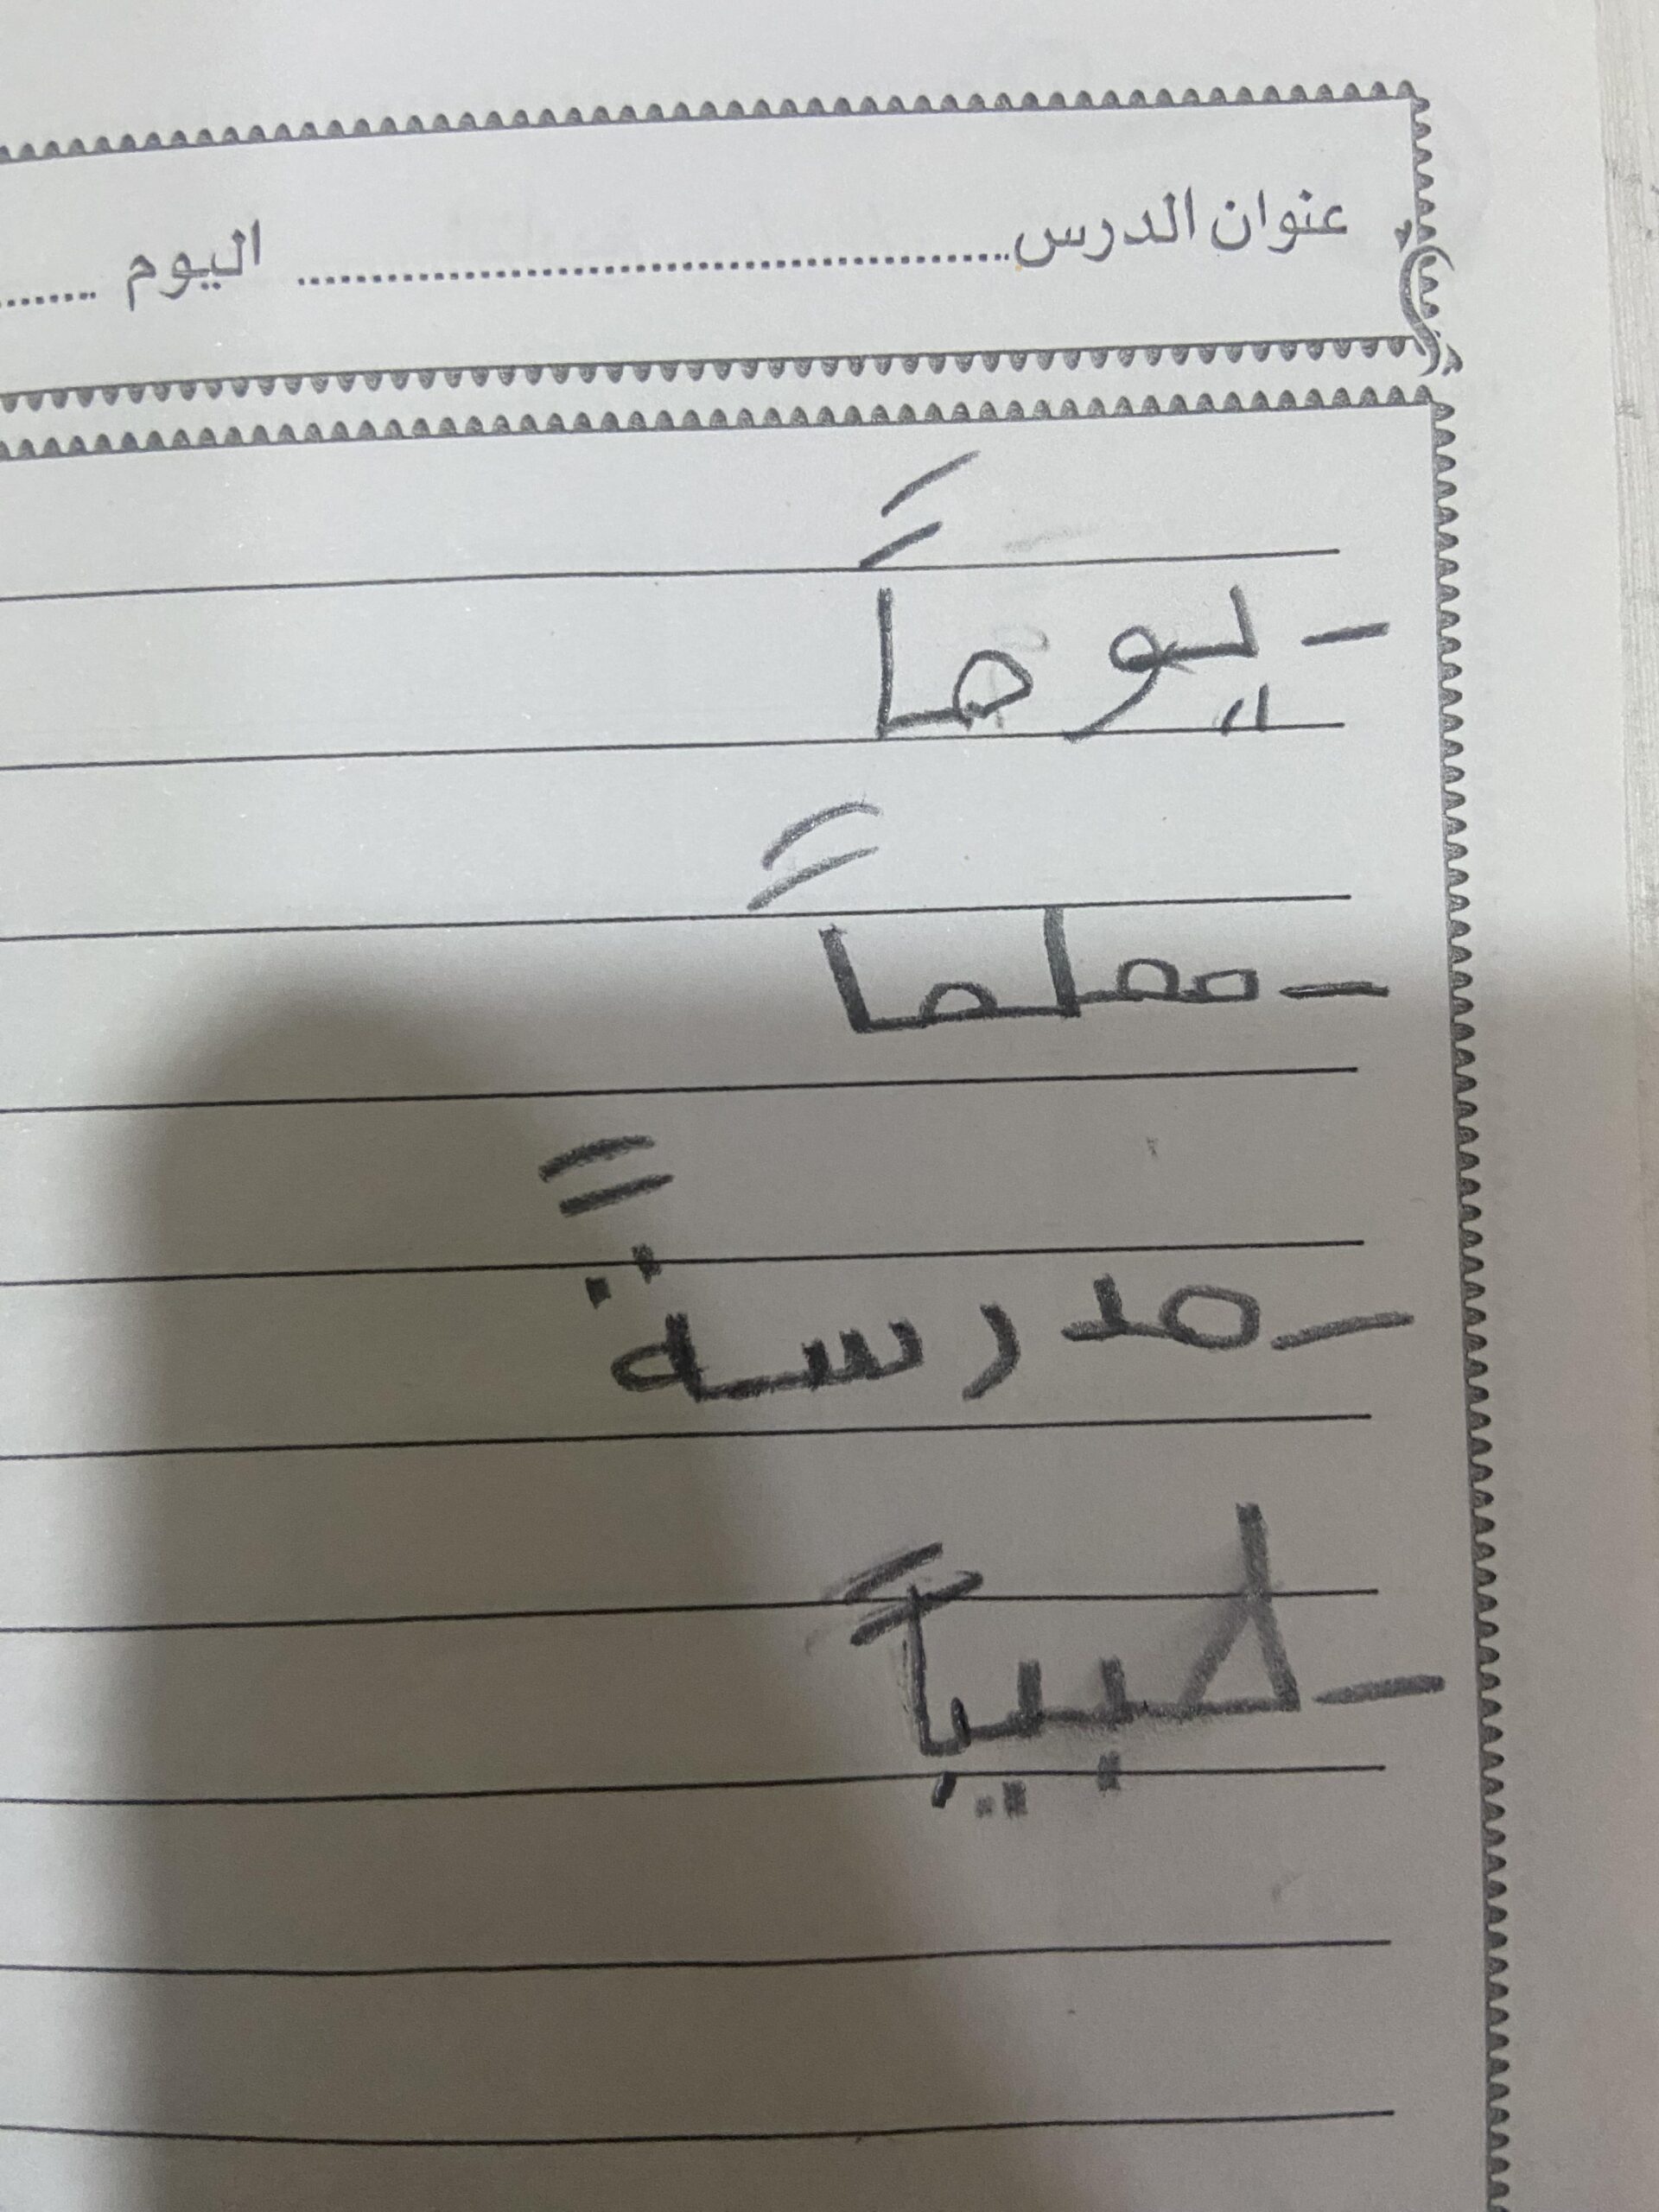 عنوان الدرس........................ اليوم ........
- يوماً
- معلماً
- مدرسةً
- طبيباً